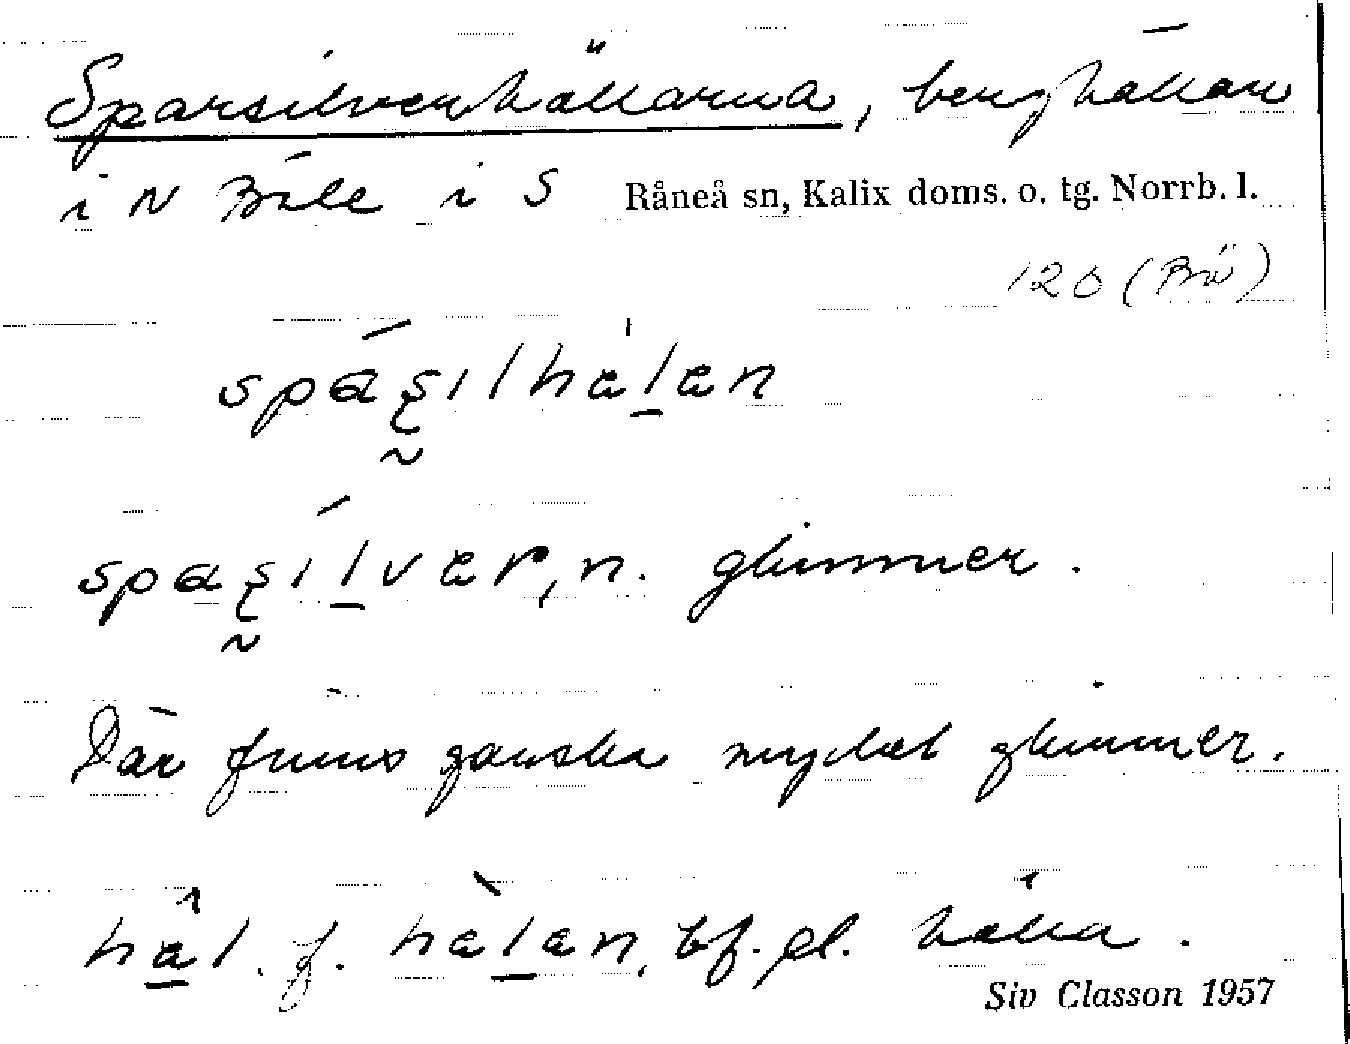 Sparsilverhällarna, berghällar
i N Böle i S Råneå sn, Kalix doms. o. tg. Norrb. l.
120 (Brä)
spáʂılhälan
spaʂılvær, n. glimmer.
Där finns ganska mycket glimmer.
häl. f. hälan, bf. pl. hälla.
Siv Classon 1957